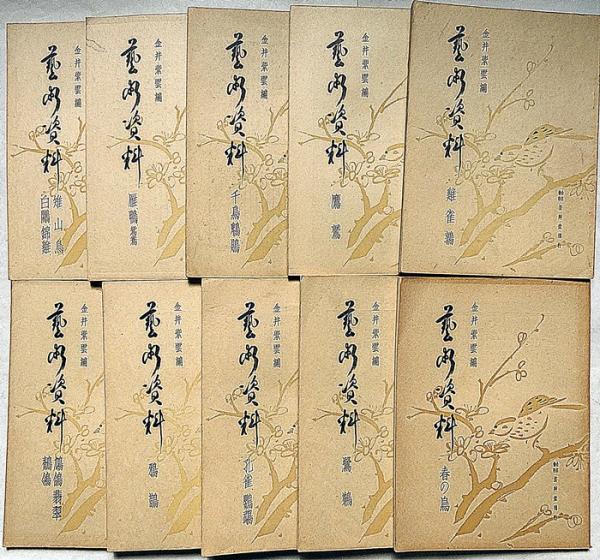 金井紫雲編
藝術資料
雉山鳥
白鷴錦雞
金井紫雲編
藝術資料
雁鴨鴛鴦
金井紫雲編
藝術資料
千鳥
金井紫雲編
藝術資料
鷹鷲
金井紫雲編
藝術資料
雞雀鶉
金井紫雲編
藝術資料
翡翠
金井紫雲編
藝術資料
金井紫雲編
藝術資料
孔雀鸚鵡
金井紫雲編
藝術資料
金井紫雲編
藝術資料
春の鳥